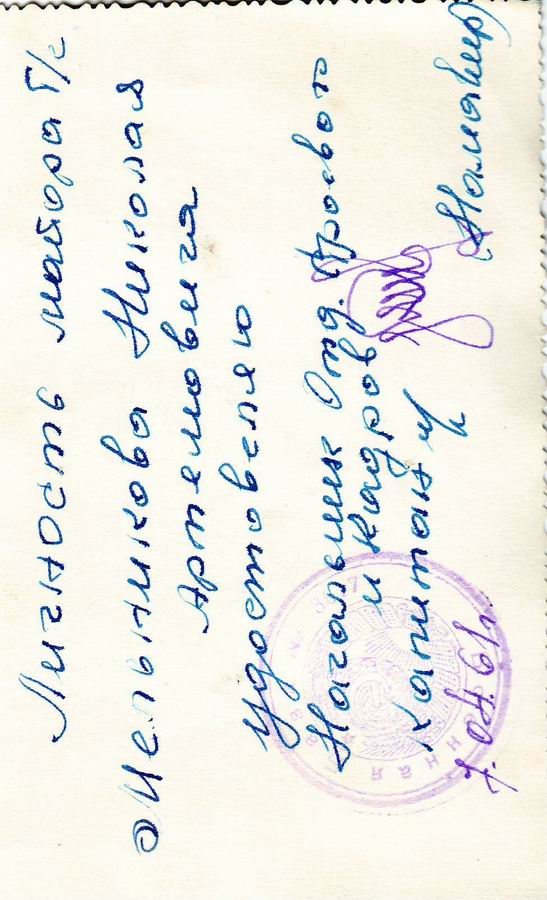 Личность майора т/с
Мельникова Николая
Артемовича
удостоверяю
Начальник Отд. Строевого
и кадров
капитан
7.04.61г.